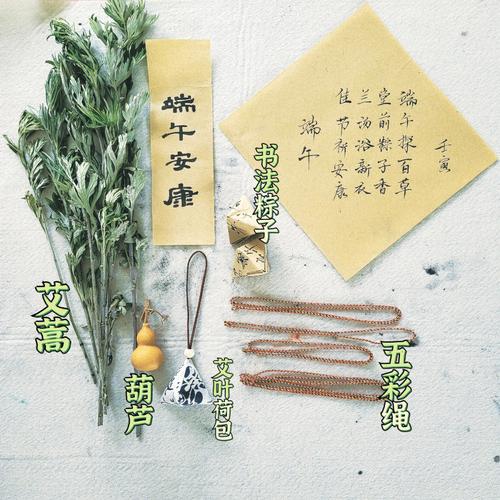 端午安康
壬寅
端午探百草
堂前粽子香
兰汤浴新衣
佳节祈安康
端午
书法粽子
艾蒿
葫芦
艾叶荷包
五彩绳